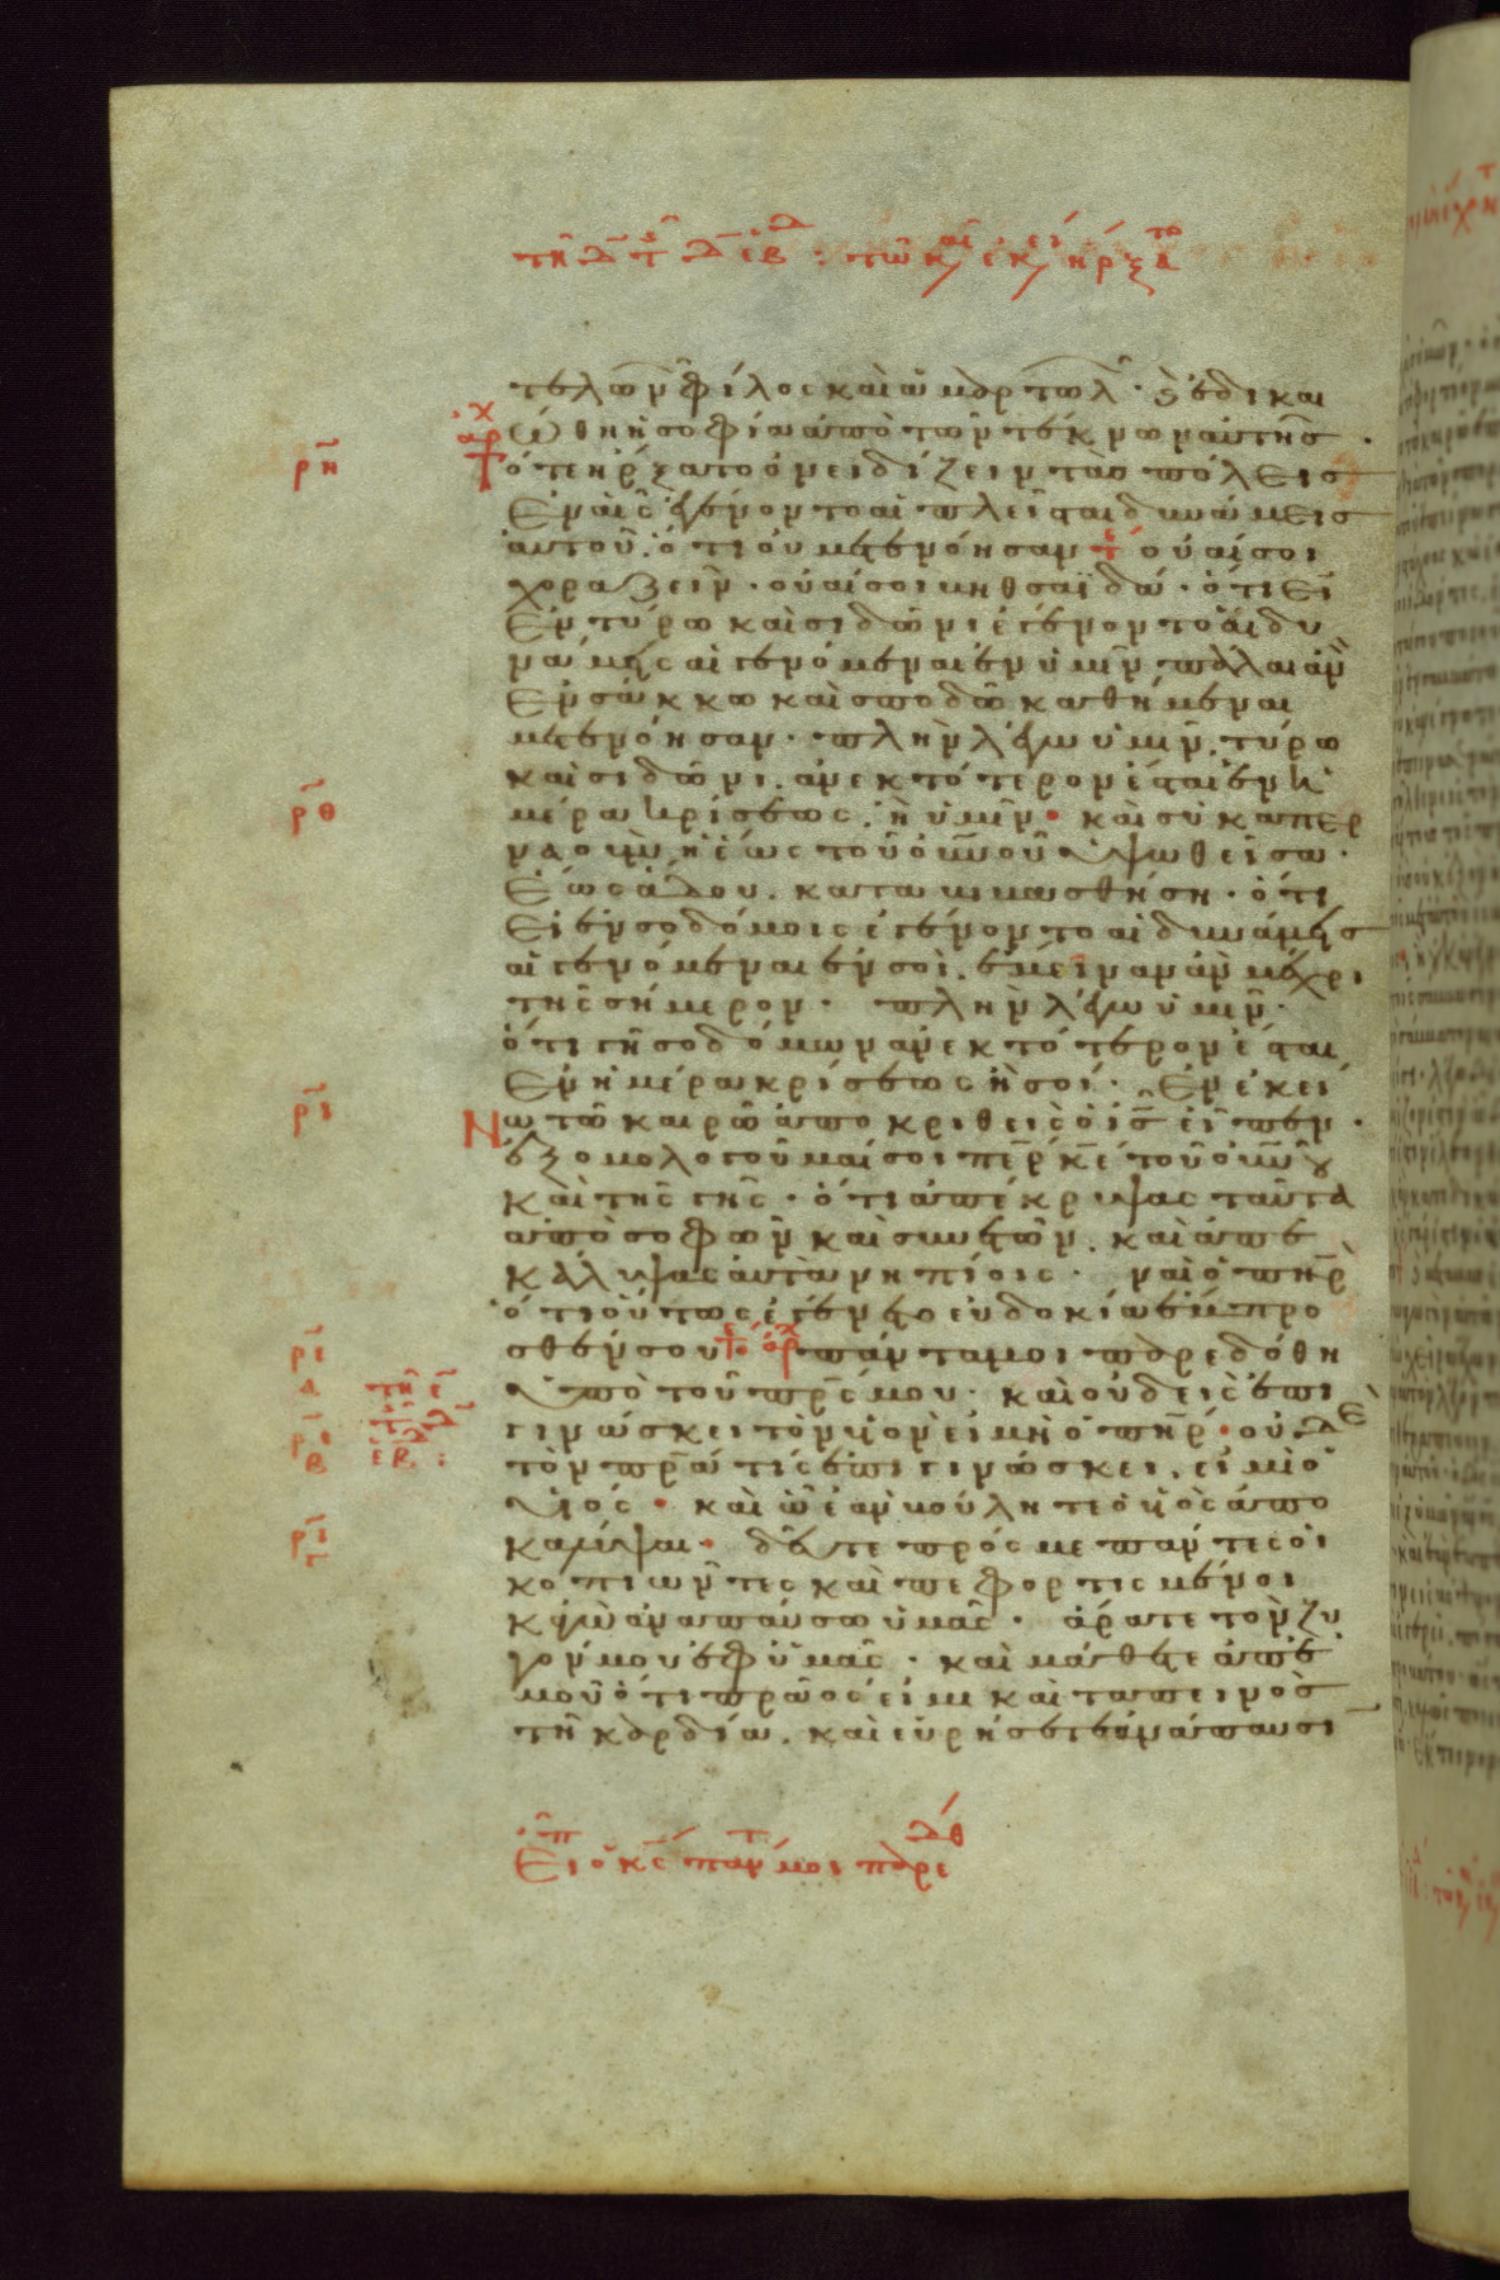 τελων φίλος και ἁμαρτωλ· ἐδικαι
ώθη ἡ σοφία ἀπὸ τῶν τέκνων αὐτῆς·
ρη
τότε ἤρξατο ὀνειδίζειν τὰς πόλεις
Ἐν αἷς ἐγένοντο αἱ πλεῖσται δυνάμεις
αὐτοῦ. ὅτι οὐ μετενόησαν οὐαί σοι
χοραζείν· οὐαί σοι βηθσαϊδά· ὅτι εἰ
Ἐν τύρω καὶ σιδῶνι ἐγένοντο αἱ δυ
νάμεις αἱ γενόμεναι ἐν ὑμῖν πάλαι ἂν
Ἐν σάκκω καὶ σποδῶ καθήμεναι
μετενόησαν· πλὴν λέγω ὑμῖν. τύρω
καὶ σιδῶνι. ἀνεκτότερον ἔσται ἐν ἡ
ρθ
μέρα κρίσεως. ἢ ὑμῖν· καὶ σὺ καπερ
ναοὺμ ἡ ἕως τοῦ οὐνου ὑψωθεῖσα·
Ἕως ἅδου. καταβιβασθήση· ὅτι
Εἰ ἐν σοδόμοις ἐγένοντο αἱ δυνάμεις
αἱ γενόμεναι ἐν σοὶ. ἔμειναν ἂν μέχρι
τῆς σήμερον· πλὴν λέγω ὑμῖν·
ὅτι γῆ σοδόμων ἀνεκτότερον ἔσται
Ἐν ἡμέρα κρίσεως ἢ σοί· Ἐν ἐκεί
ρι
νω τῶ καιρῶ ἀποκριθεὶς ὁ ις εἶπεν·
ἐξομολογοῦμαί σοι περ κε τοῦ οὐνου
Καὶ τῆς γῆς· ὅτι ἀπέκρυψας ταῦτα
ἀπὸ σοφῶν καὶ συνετῶν. καὶ ἀπε
κάλυψας αὐτὰ νηπίοις· ναὶ ὁ πηρ
ὅτι οὕτως ἐγένετο εὐδοκία ἔμπρο
ρια
σθέν σου πάντα μοι παρεδόθη
ὑπὸ τοῦ πρς μου· καὶ οὐδεὶς ἐπι
ριβ
γινώσκει τὸν υἱὸν εἰ μὴ ὁ πηρ· οὐδὲ
τὸν πρα τίς ἐπιγινώσκει. εἰ μὴ ὁ
υἱός· καὶ ὧ ἐὰν βούληται ὁ υἱὸς ἀπο
ριγ
καλύψαι· δεῦτε πρός με πάντες οἱ
κοπιῶντες καὶ πεφορτισμένοι
κἀγὼ ἀναπαύσω ὑμᾶς· ἄρατε τὸν ζυ
γόν μου ἐφ ὑμᾶς· καὶ μάθετε ἀπ ἐ
μοῦ ὅτι πρᾶος εἰμι καὶ ταπεινὸς
τῆ καρδία. καὶ εὑρήσετε ἀνάπαυσι
Εἶπ ὁ κς παντ μοι παρεδθ